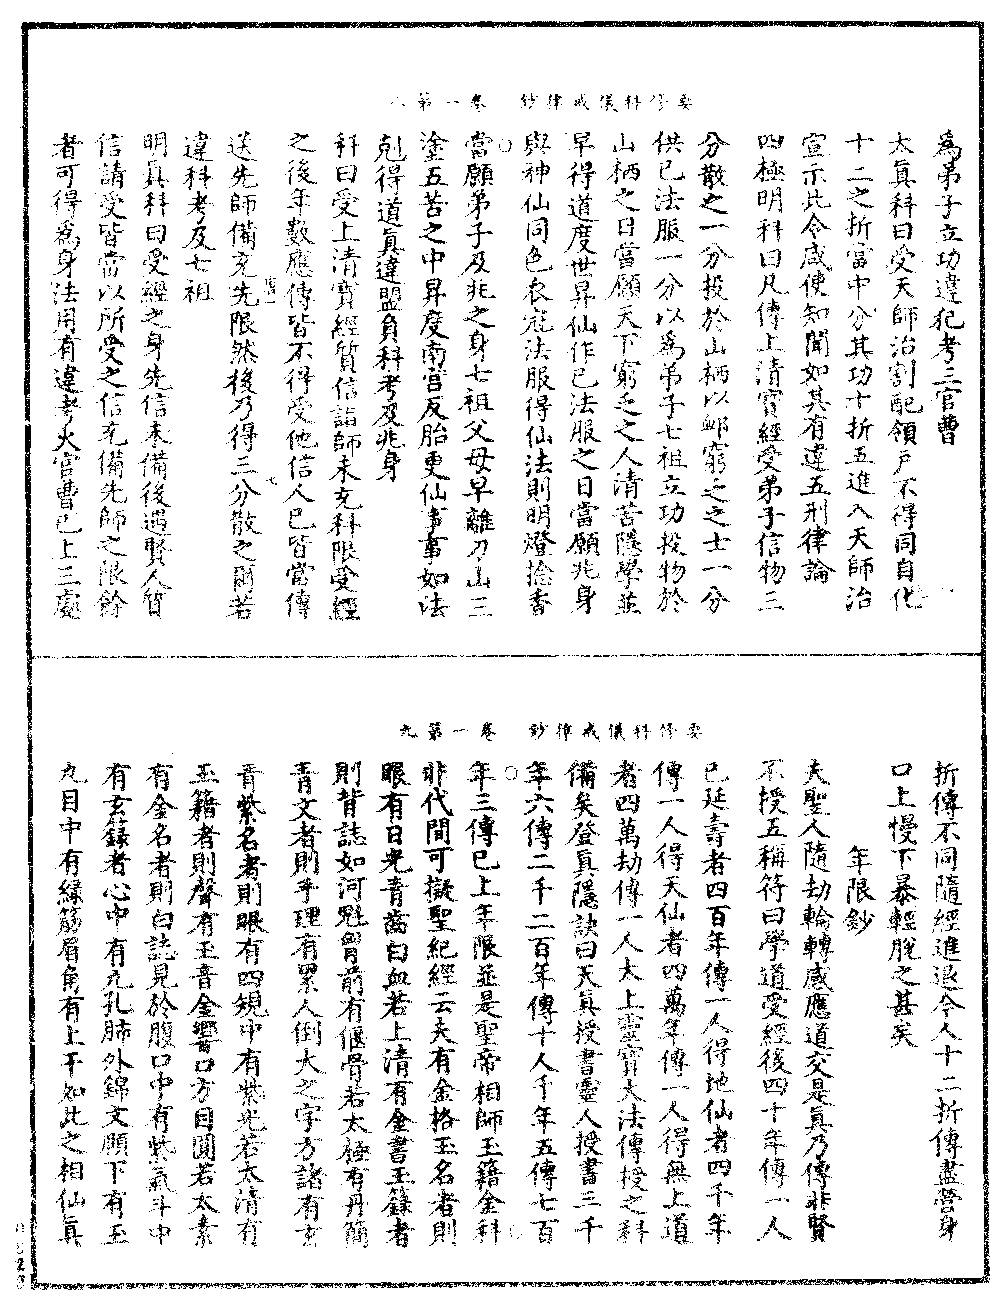 要修科儀戒律鈔　卷一第八
為弟子立功違犯考三官曹
太真科曰受天師治割配領戶不得同自化
十二之折當中分其功十折五進入天師治
宣示此令咸使知聞如其有違五刑律論
四極明科曰凡傳上清寶經受弟子信物三
分散之一分投於山栖以卹窮乏之士一分
供已法服一分以為弟子七祖立功投物於
山栖之日當願天下窮乏之人清苦隱學並
早得道度世昇仙作已法服之日當願兆身
與神仙同色衣冠法服得仙法則明燈捻香
當願弟子及兆之身七祖父母早離刀山三
塗五苦之中昇度南宮反胎更仙事事如法
剋得道真違盟負科考及兆身
科曰受上清寶經質信詣師未充科限受經
之後年數應傳皆不得受他信人已皆當傳
送先師備充先限然後乃得三分散之爾若
違科考及七祖
明真科曰受經之身先信未備後遇賢人質
信請受皆當以所受之信充備先師之限餘
者可得為身法用有違考火官曹已上三處
要修科儀戒律鈔　卷一第九
折傳不同隨經進退今人十二折傳盡營身
口上慢下暴輕脫之甚矣
年限鈔
夫聖人隨劫輪轉感應道交是真乃傳非賢
不授五稱符曰學道受經後四十年傳一人
已延壽者四百年傳一人得地仙者四千年
傳一人得天仙者四萬年傳一人得無上道
者四萬劫傳一人太上靈寶大法傳授之科
備矣登真隱訣曰天真授書靈人授書三千
年六傳二千二百年傳十人千年五傳七百
年三傳已上年限並是聖帝相師玉籍金科
非代間可擬聖紀經云夫有金格玉名者則
眼有日光青齒白血若上清有金書玉籙者
則背誌如河魁胷前有偃骨若太極有丹簡
青文者則手理有累人倒大之字方諸有玄
青紫名者則眼有四規中有紫光若太清有
玉籍者則聲有玉音金響口方目圓若太素
有金名者則白誌見於腹口中有紫氣斗中
有玄籙者心中有九孔肺外錦文頤下有玉
丸目中有緣筋眉角有上干如此之相仙真